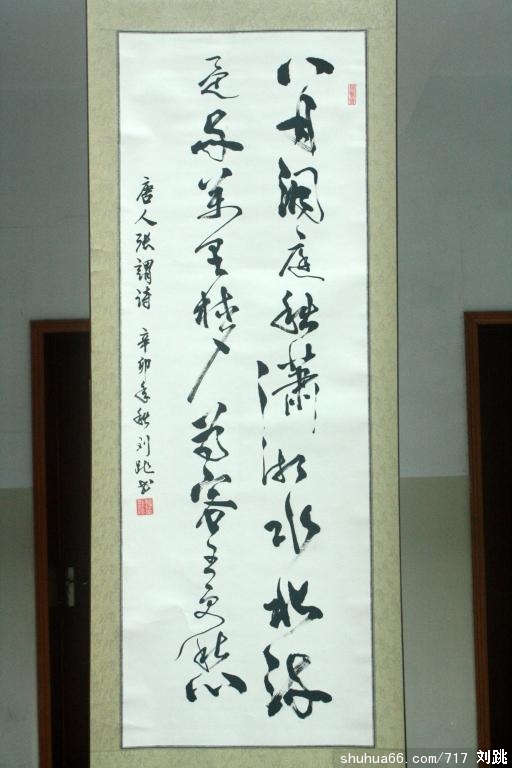 八月洞庭秋瀟湘水北流
还家萬里梦為客五更愁
唐人張謂诗 辛卯年秋刘跳书
shuhua66.com/717 刘跳